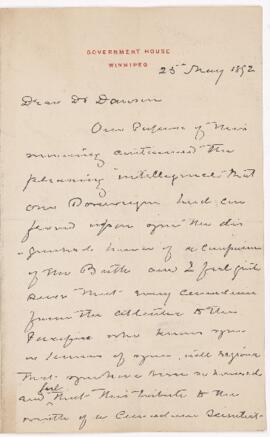 GOVERNMENT HOUSE
WINNIPEG
25th May 1892
Dear Dr Dawson
Our papers of this
morning contained the
pleasing intelligence that
our Sovereign had con
ferred upon you the dis
of a Companion
of the Bath and I feel quite
sure that every Canadian
from the Atlantic to the
Pacific who knows you
or knows of you, will
that you have been so honored
and feel that this tribute to the
worth of a Canadian Scientist